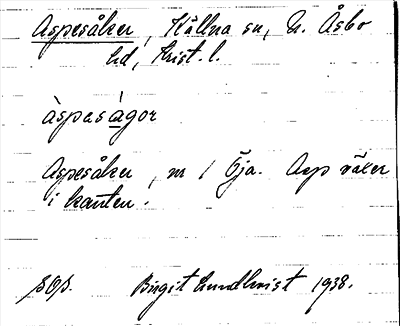 Aspesåker, Källna sn, N. Åsbo
hd, Krist. l.
àspasågor
Aspesåker, m / Öja. Asp växer
i kanten.
SOS. Birgit Lundkvist 1938.